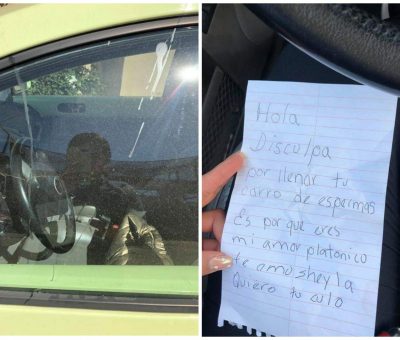 Hola
Disculpa
por llenar tu
carro de espermas
Es por que eres
mi amor platonico
te amo sheyla
Quiero tu culo